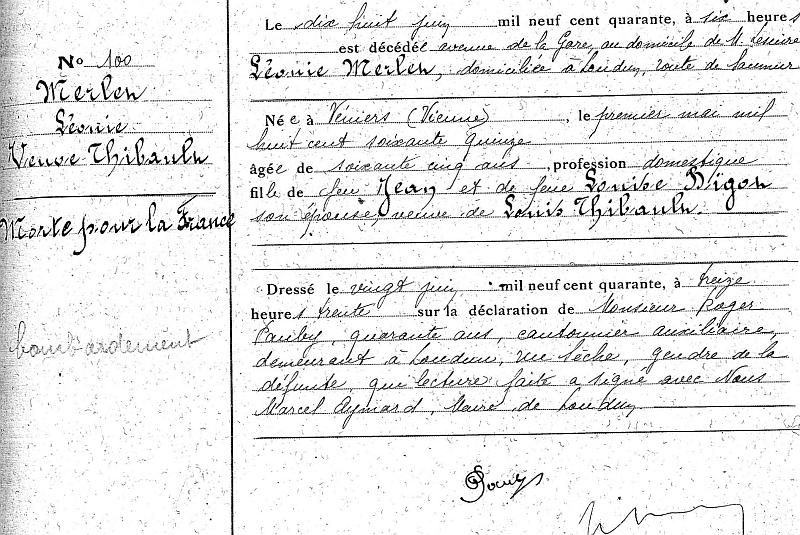 No 100
Merlen
Léonie
Veuve Thibault
Morte pour la France
bombardement
Le dix huit juin mil neuf cent quarante, à six heures
est décédée avenue de la Gare, au domicile de M. Lescure
Léonie Merlen, domiciliée à Loudun, route de Saumur
Née à Véniers (Vienne), le premier mai mil
huit cent soixante quinze
âgée de soixante cinq ans, profession domestique
fille de feu Jean et de feue Louise Bigon
son épouse, veuve de Louis Thibault.
Dressé le vingt juin mil neuf cent quarante, à treize
heures trente sur la déclaration de Monsieur Roger
quarante ans, cantonnier auxiliaire,
demeurant à Loudun, rue Sèche, gendre de la
défunte, qui lecture faite a signé avec Nous
Marcel Aymard, Maire de Loudun